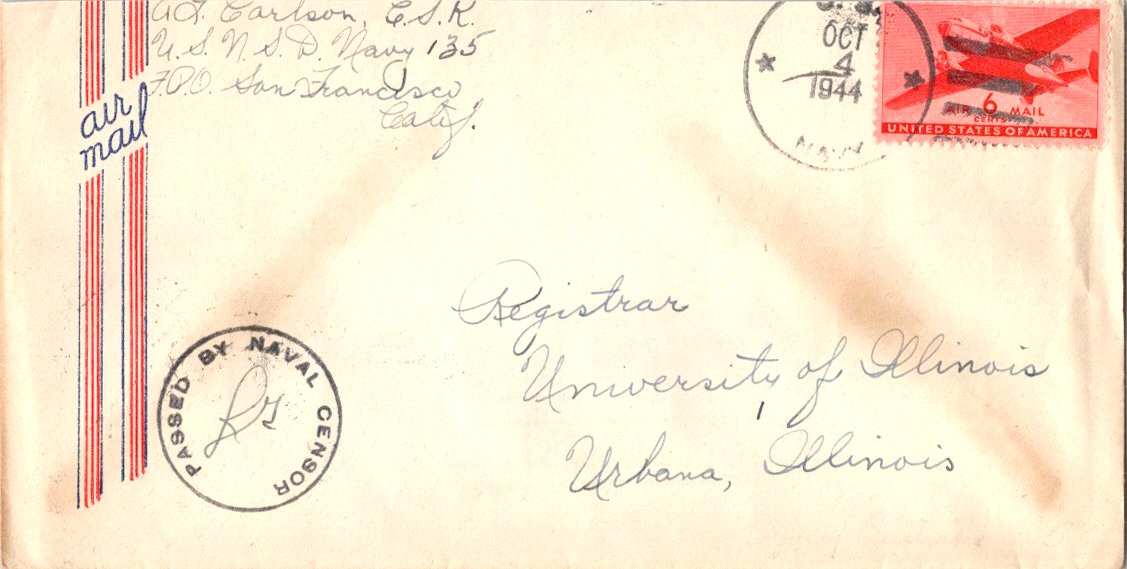 A.L. Carlson, C.S.K.
U.S.N.S.D. Navy 135
F.P.O. San Francisco
Calif.
air
mail
OCT
4
1944
NAVY
AIR 6 MAIL
CENTS
UNITED STATES OF AMERICA
Registrar
University of Illinois
Urbana, Illinois
PASSED BY NAVAL CENSOR